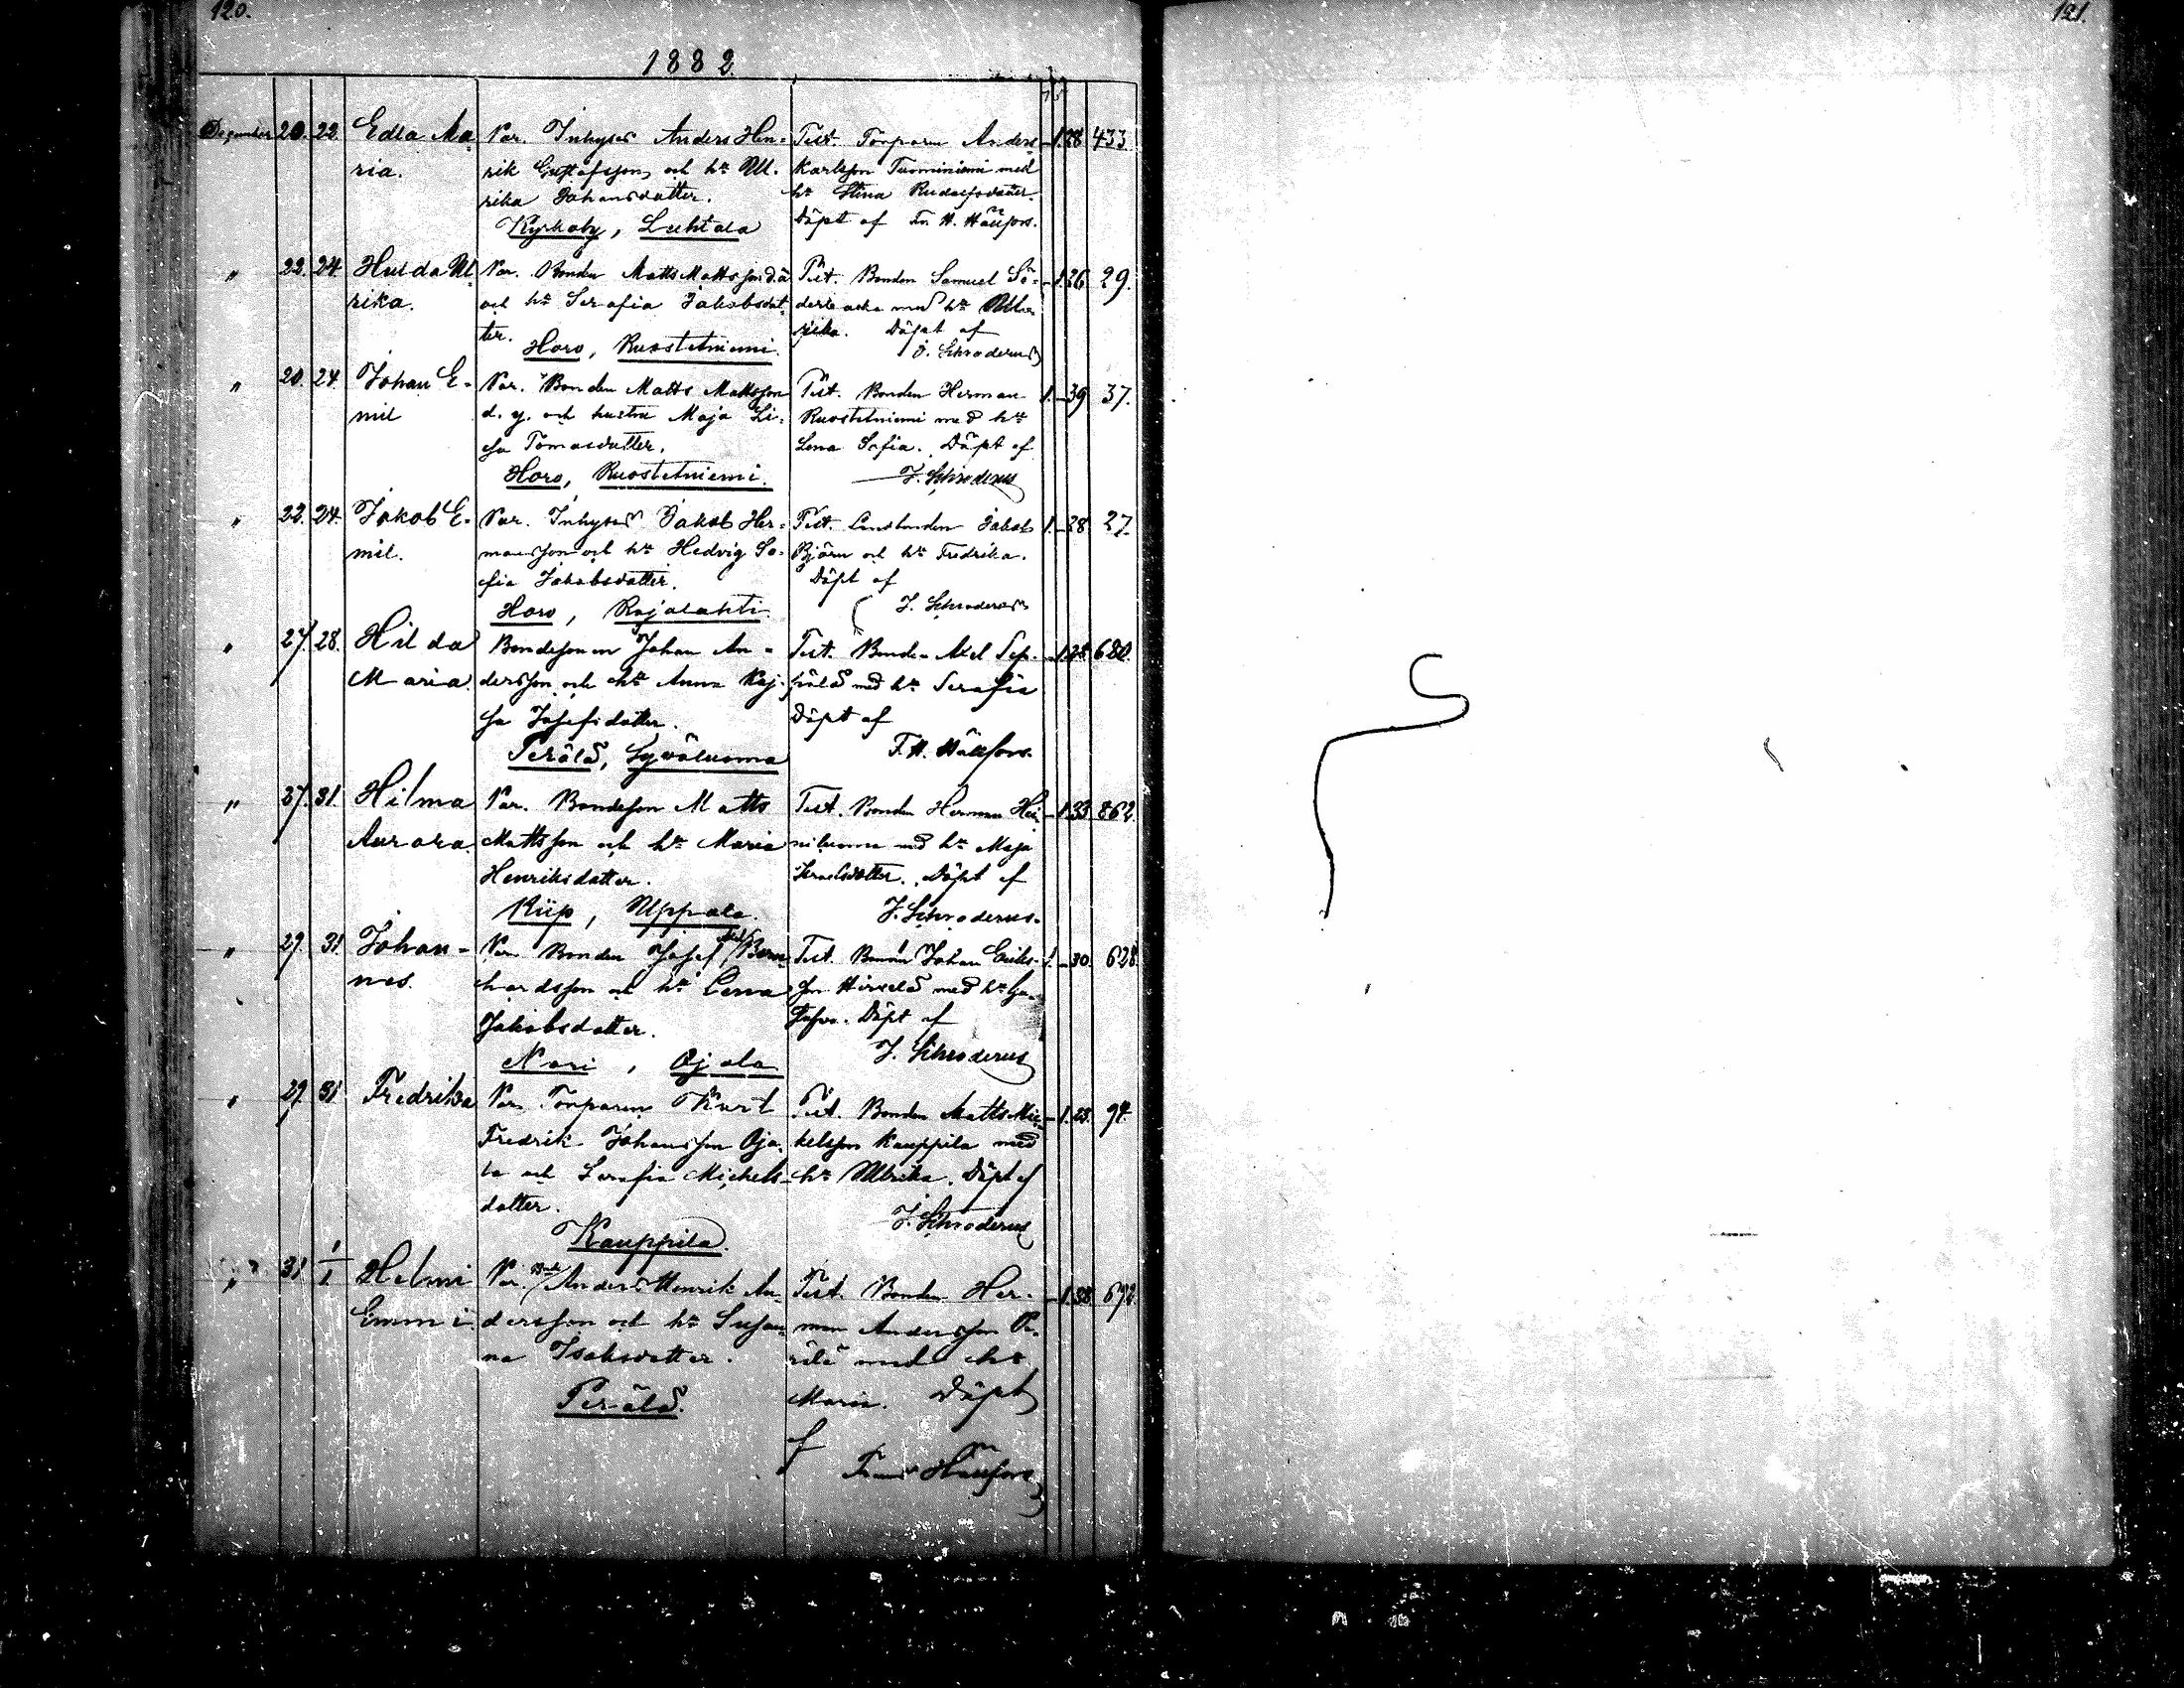 120.
121.
1882.
December 20. 22. Edla Ma-
ria.
Par. Inhyses Anders Hen-
rik Gustafsson och hu Ul-
rika Johansdatter.
Kyrkoby, Luhtala
Test. Torparen Anders
Karlsson Tuominiemi med
hu Stina Rudolfsdatter.
Döpt af Fr. H. Hällfors.
1. 28 433
" 22. 24. Hulda Ul-
rika.
Par. Bonden Matts Mattsson d.ä
och hu Serafia Jakobsdat-
ter.
Horo, Ruostetniemi.
Test. Bonden Samuel Sö-
derbacka med hu Ul-
rika. Döpt af
J. Schroderus
1. 26 29.
" 20. 24. Johan E-
mil
Par. Bonden Matts Mattsson
d. y. och hustru Maja Li-
sa Tomasdatter.
Horo, Ruostetniemi.
Test. Bonden Herman
Ruostetniemi med hu
Lena Sofia. Döpt af
J. Schroderus
1. 39 37.
" 22. 24. Jakob E-
mil.
Par. Inhyses Jakob Her-
mansson och hu Hedvig So-
fia Jakobsdatter.
Horo, Rajalahti.
Test. Jakob
Björn och hu Fredrika.
Döpt af
J. Schroderus
1. 28 27.
" 27. 28. Hilda
Maria.
Bondesonen Johan An-
dersson och hu Anna Kaj-
sa Josefsdatter.
Perälä, Syväluoma
Test. Bonden Axel Sep-
pälä med hu Serafia
Döpt af
F. H. Hällfors.
680.
" 27. 31. Hilma
Aurora.
Par. Bondeson Matts
Mattsson och hu Maria
Henriksdatter.
Riip, Uppala.
Test. Bonden Herman Hei-
niluoma med hu Maja
Israelsdatter. Döpt af
J. Schroderus.
1. 33 862.
" 29. 31. Johan-
nes.
Par. Bonden Josef Bern-
hardsson och hu Lena
Jakobsdatter.
Nori, Ojala
Test. Bonden Johan Eriks-
son Hirvelä med hu
Döpt af
J. Schroderus
1. 30. 628.
" 29. 31. Fredrika
Par. Torparen Karl
Fredrik Johansson Oja-
la och Serafia Michels-
datter.
Kauppila.
Test. Bonden Matts Mic-
kelsson Kauppila med
hu Ulrika. Döpt af
J. Schroderus
1. 23. 94.
" 31 1/1 Helmi
Emmi.
Par. Anders Henrik An-
dersson och hu Susan-
na Isaksdatter.
Perälä.
Test. Bonden Her-
man Andersson Pe-
rälä med hu
Maria. Döpt
af
Hällfors
1. 38 692.